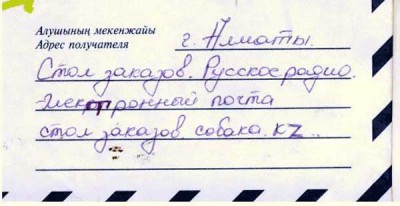 Алушының мекенжайы
Адрес получателя
г. Алматы.
Стол заказов. Русское радио.
электронный почта
стол заказов. собака. KZ..